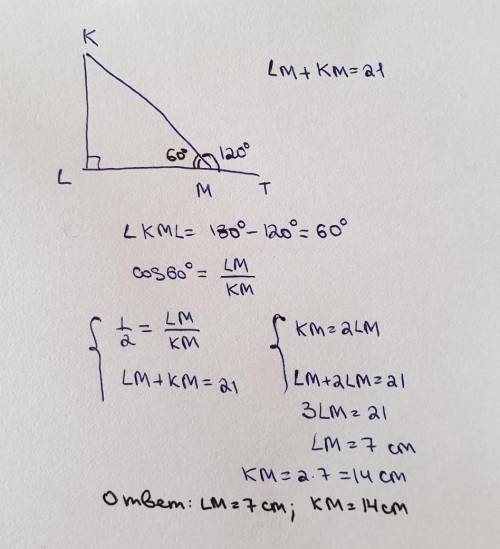 K
LM + KM = 21
60° 120°
L M T
∠KML = 180° − 120° = 60°
cos60° = LM/KM
{ 1/2 = LM/KM
LM + KM = 21
{ KM = 2LM
LM + 2LM = 21
3LM = 21
LM = 7 cm
KM = 2·7 = 14 cm
Ответ: LM = 7 cm; KM = 14 cm